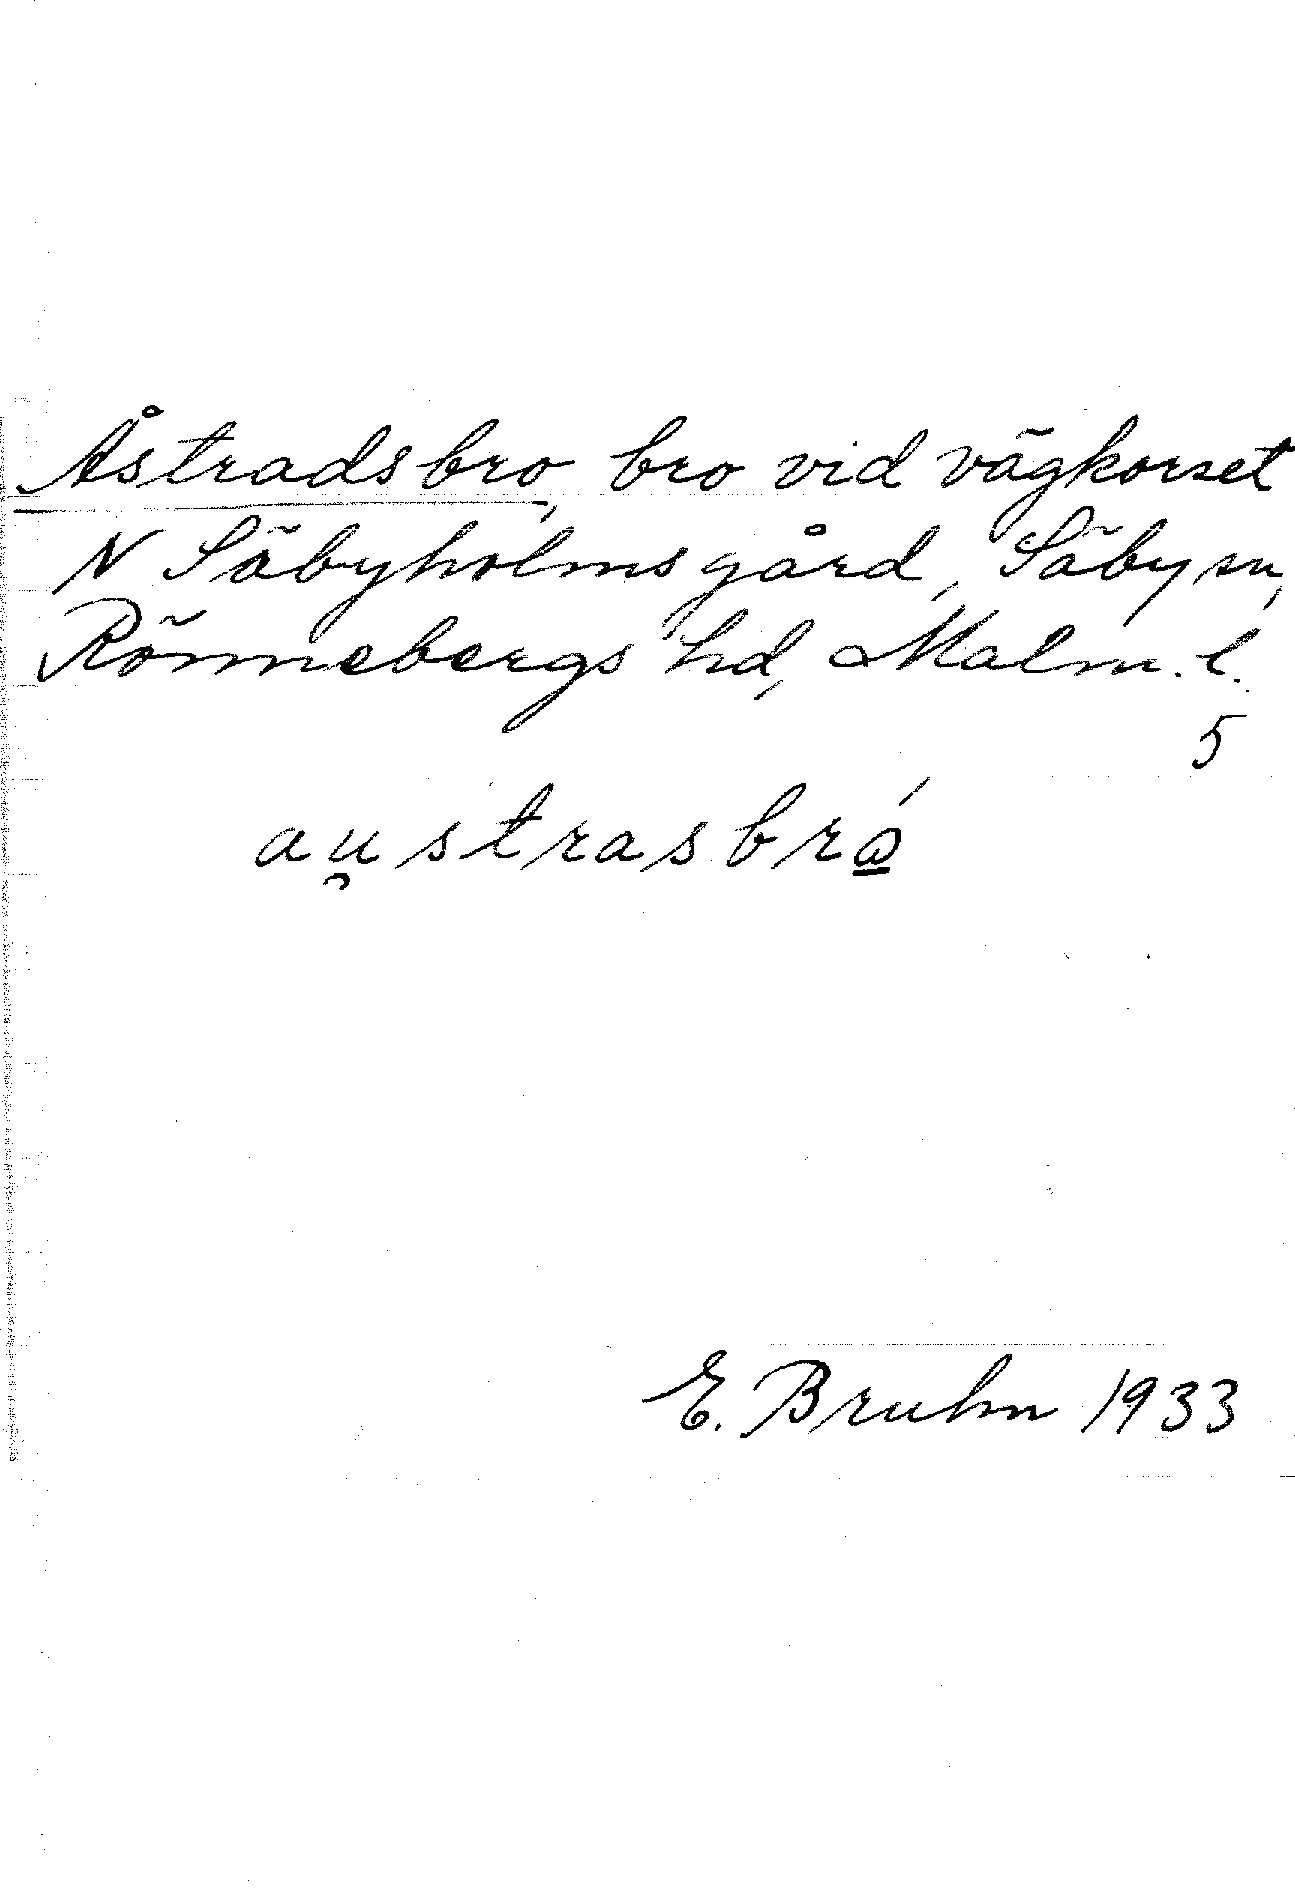 Åstradsbro, bro vid vägkorset
N Säbyholmsgård, Säby sn,
Rönnebergs hd, Malm. l.
5
au̯strasbrǫ́
E. Bruhn 1933